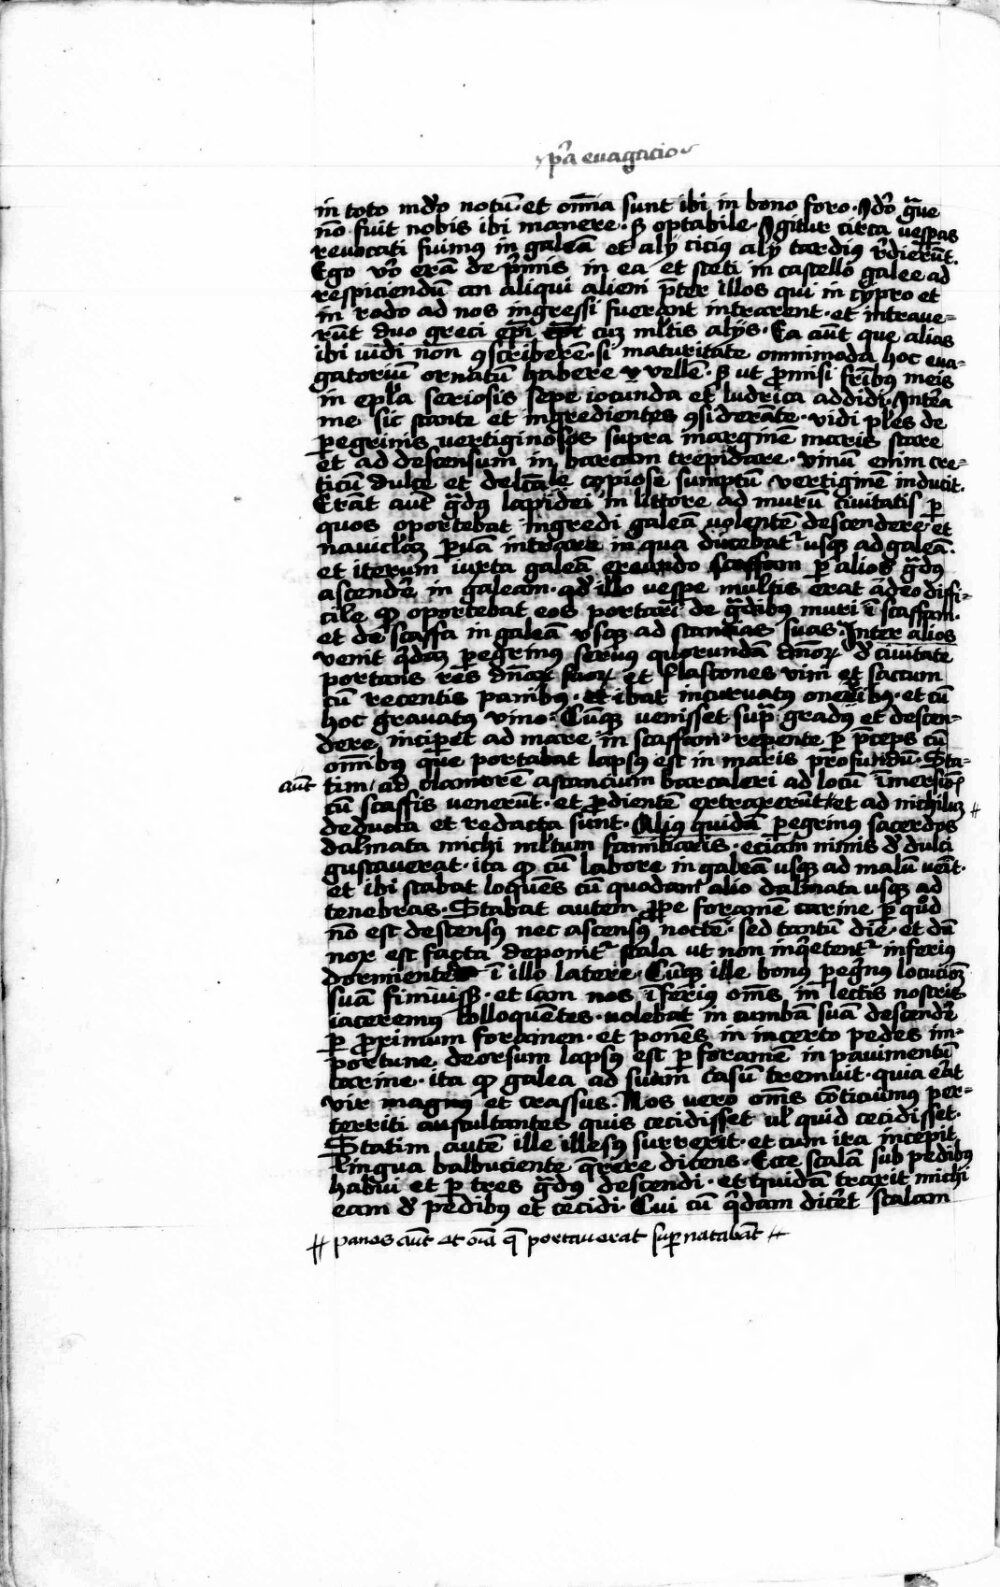 p̄a evagacio
in toto mūdo notū · et om̄ia sunt ibi in bono foro · Ideo gͣue
nō fuit nobis ibi manere · sʒ optabile · Igitur circa vesperas
revocati fuimus in galeā et alij cicius alij tardius rediert̄.
Ego vͦo erā de pͥmis in ea et steti in castello galee ad
respiciendū an aliqui alieni p̄ter illos qui in cypro et
in rodo ad nos ingressi fuerant intrarent · et intrave⸗
rūt duo greci ep̄i cuȝ ml̄tis alijs · Ea aūt que alias
ibi vidi non ꝯscriberē · si maturitatē omnimodā hoc eva⸗
gatoriū ornatū habere vellē · sʒ ut ꝓmisi fr̄ibꝰ meis
in epl̄a seriosis sepe iocunda et ludrica addidi · Intͤea
me sic stante et ingredientes ꝯsiderāte · vidi pl̄es de
peregrinis vertiginosos supra marginē maris stare
et ad descensum in barcam trepidare · vinū enim cre⸗
ticū dulce et delc̄abile copiose sumptū vertiginē inducit.
Erāt aūt gͣdꝰ lapidei in littore ad murū civitatis ꝑ
quos oportebat ingredi galeā volentē descendere et
naviclāȝ ꝑvā intrare in qua ducebat᷑ usqȝ ad galeā.
et iterum iuxta galeā creando scaffam ꝑ alios gͣdꝰ
ascendͤe in galeam · qd̄ illo vespe multis erat adeo diffi⸗
cile ꝙ oportebat eos portari de gͣdibꝰ muri ī scaffam.
et de scaffa in galeā usqȝ ad stancias suas · Inter alios
venit qͥdaȝ peregrinꝰ servꝰ quorundā dn̄oꝝ ꝺ civitate
portans res dn̄oꝝ suoꝝ et flascones vini et saccum
cū recentis panibꝰ · et ibat incurvatꝰ oneribꝰ · et cū
hoc gravatꝰ vino · Cūqȝ venisset supͣ gradꝰ et descen⸗
dere inciperet ad mare in scaffam · repente ꝑ p̄ceps cū
om̄ibus que portabat lapsus est in maris profundū · Sta⸗
aūt tim / ad clamorē astancium barcaleri ad locū īmersionꝭ
cū scaffis venerūt · et ꝑdientē extraxerūt et ad nichiluȝ ⧺
deducta et redacta sunt · Aliꝰ quidā peregrinꝰ sacerdos
dalmata michi ml̄tum familiaris · eciam nimis ꝺ dulci
gustaverat · ita ꝙ cū labore in galeā usqȝ ad malū venit ·
et ibi stabat loquens cū quodam alio dalmata usqȝ ad
tenebras · Stabat autem ꝓpe foramē carine ꝑ quod
nō est descensꝰ nec ascensꝰ nocte · sed tantū die · et dū
nox est facta deponit᷑ scala ut non inqͥetent᷑ inferiꝰ
dormientes ī illo latere · Cūqȝ ille bonꝰ pegͥnꝰ locucionē
suā finivissʒ · et iam nos īferius om̄s in lectis nostris
iaceremꝰ colloquentes · volebat in cumbā suā descendͤe
ꝑ ꝓximum foramen · et ponēs in incerto pedes im⸗
portune deorsum lapsꝰ est ꝑ foramē in pavimentū
carine · ita ꝙ galea ad suum casū tremuit · quia erat
vir magnꝰ et crassus · Nos vero om̄s cōticuimꝰ per⸗
territi auscultantes quis cecidisset vl̄ quid cecidisset ·
Statim autē ille illesꝰ surrexit · et cum ira incepit
lingua balbuciente qͣrere dicens · Ecce scalā sub pedibꝰ
habui et ꝑ tres gͣdꝰ descendi · et quidā traxit michi
eam ꝺ pedibꝰ et cecidi · Cui cū qͥdam dicͤet scalam
⧺ panes aūt et oīa q̄ portaverat suꝑnatabāt ⧺